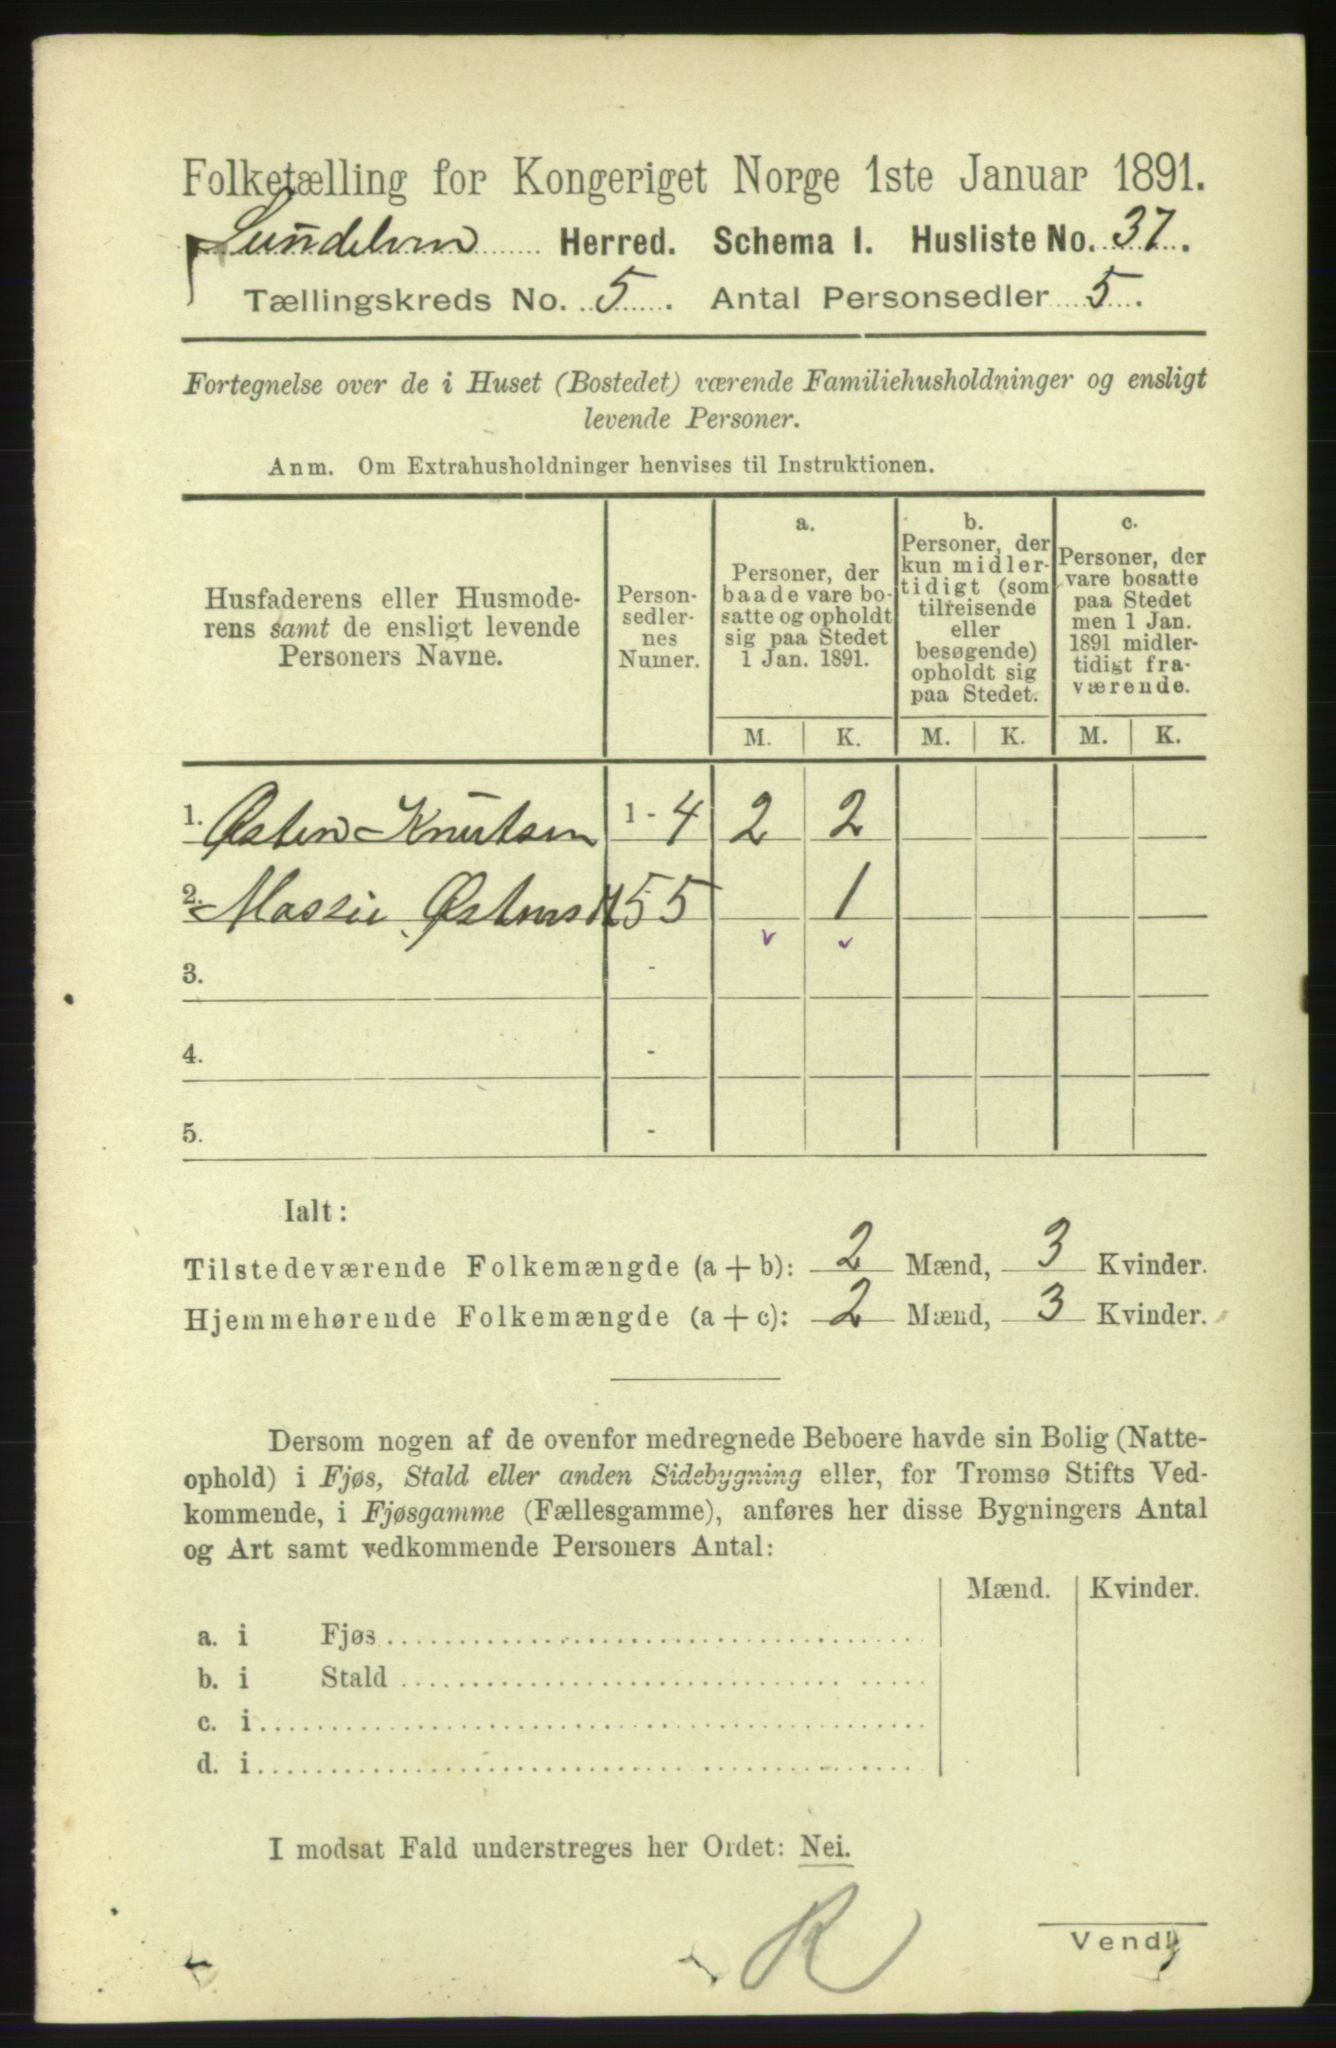 Folketælling for Kongeriget Norge 1ste Januar 1891.
Sundelven Herred. Schema I. Husliste No. 37.
Tællingskreds No. 5. Antal Personsedler 5.
Fortegnelse over de i Huset (Bostedet) værende Familiehusholdninger og ensligt
levende Personer.
Anm. Om Extrahusholdninger henvises til Instruktionen.
Husfaderens eller Husmode-
rens samt de ensligt levende
Personers Navne.
Person-
sedler-
nes
Numer.
a.
Personer, der
baade vare bo-
satte og opholdt
sig paa Stedet
1 Jan. 1891.
b.
Personer, der
kun midler-
tidigt (som
tilreisende
eller
besøgende)
opholdt sig
paa Stedet.
c.
Personer, der
vare bosatte
paa Stedet
men 1 Jan.
1891 midler-
tidigt fra-
værende.
M. K. M. K. M. K.
1. Østen Knutsen 1 - 4 2 2
2. Massie 55 1
3. -
4. -
5. -
Ialt:
Tilstedeværende Folkemængde (a + b): 2 Mænd, 3 Kvinder.
Hjemmehørende Folkemængde (a + c): 2 Mænd, 3 Kvinder.
Dersom nogen af de ovenfor medregnede Beboere havde sin Bolig (Natte-
ophold) i Fjøs, Stald eller anden Sidebygning eller, for Tromsø Stifts Ved-
kommende, i Fjøsgamme (Fællesgamme), anføres her disse Bygningers Antal
og Art samt vedkommende Personers Antal:
Mænd. Kvinder.
a. i Fjøs
b. i Stald
c. i
d. i
I modsat Fald understreges her Ordet: Nei.
R
Vend!